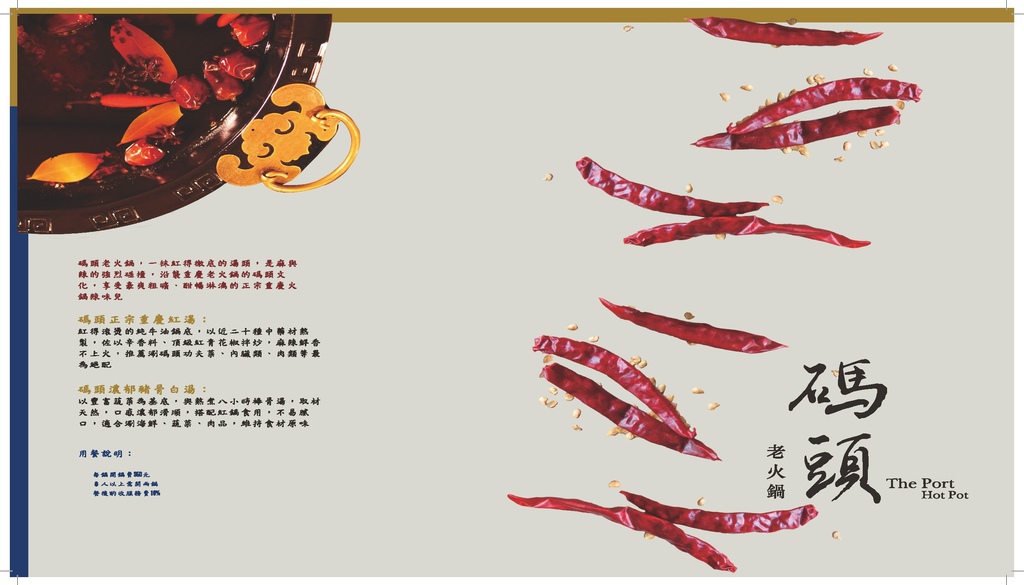 碼頭老火鍋，一抹紅得徹底的湯頭，是麻與
辣的強烈碰撞，沿襲重慶老火鍋的碼頭文
化，享受豪爽粗曠、酣暢淋漓的正宗重慶火
鍋辣味兒
碼頭正宗重慶紅湯：
紅得滾燙的純牛油鍋底，以近二十種中藥材熬
製，佐以辛香料、頂級紅青花椒拌炒，麻辣鮮香
不上火，推薦涮碼頭功夫菜、內臟類、肉類等最
為絕配
碼頭濃郁豬骨白湯：
以豐富蔬菜為基底，與熬煮八小時棒骨湯，取材
天然，口感濃郁滑順，搭配紅鍋食用，不易膩
口，適合涮海鮮、蔬菜、肉品，維持食材原味
用餐說明：
每鍋開鍋費360元
人以上需開兩鍋
餐後酌收服務費10%
碼頭
老火鍋
The Port
Hot Pot